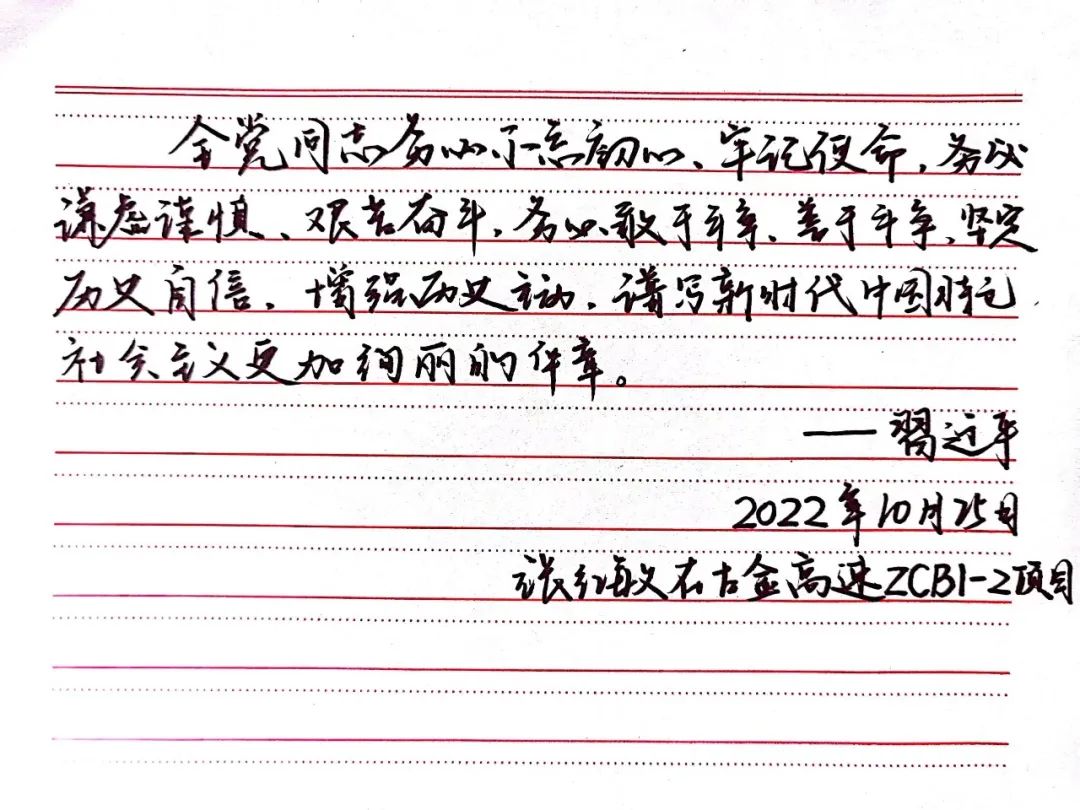 全党同志务必不忘初心、牢记使命，务必
谦虚谨慎、艰苦奋斗，务必敢于斗争、善于斗争，坚定
历史自信，增强历史主动，谱写新时代中国特色
社会主义更加绚丽的华章。
——習近平
2022年10月25日
张红敏又在古金高速ZCB1-2项目